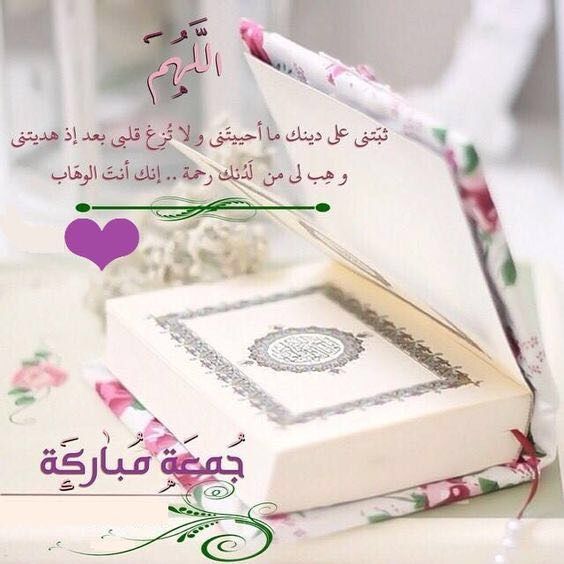 اللَّهُمَّ
ثبّتنى على دينك ما أحييتَنى و لا تُزِغ قلبى بعد إذ هديتنى
و هِب لى من لَدُنك رحمة .. إنك أنتَ الوهّاب
جُمعَة مُباركَة